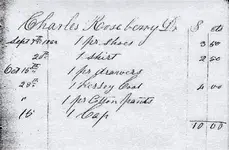 Charles Roseberry Dr $ cts
Sept 7th 1864 1 pr shoes 3 50
28" 1 shirt 2 50
Oct 15th 1 pr drawers
28" 1 Kersey Coat 4 00
" 1 pr Cotton pants
15" 1 Cap
10 00